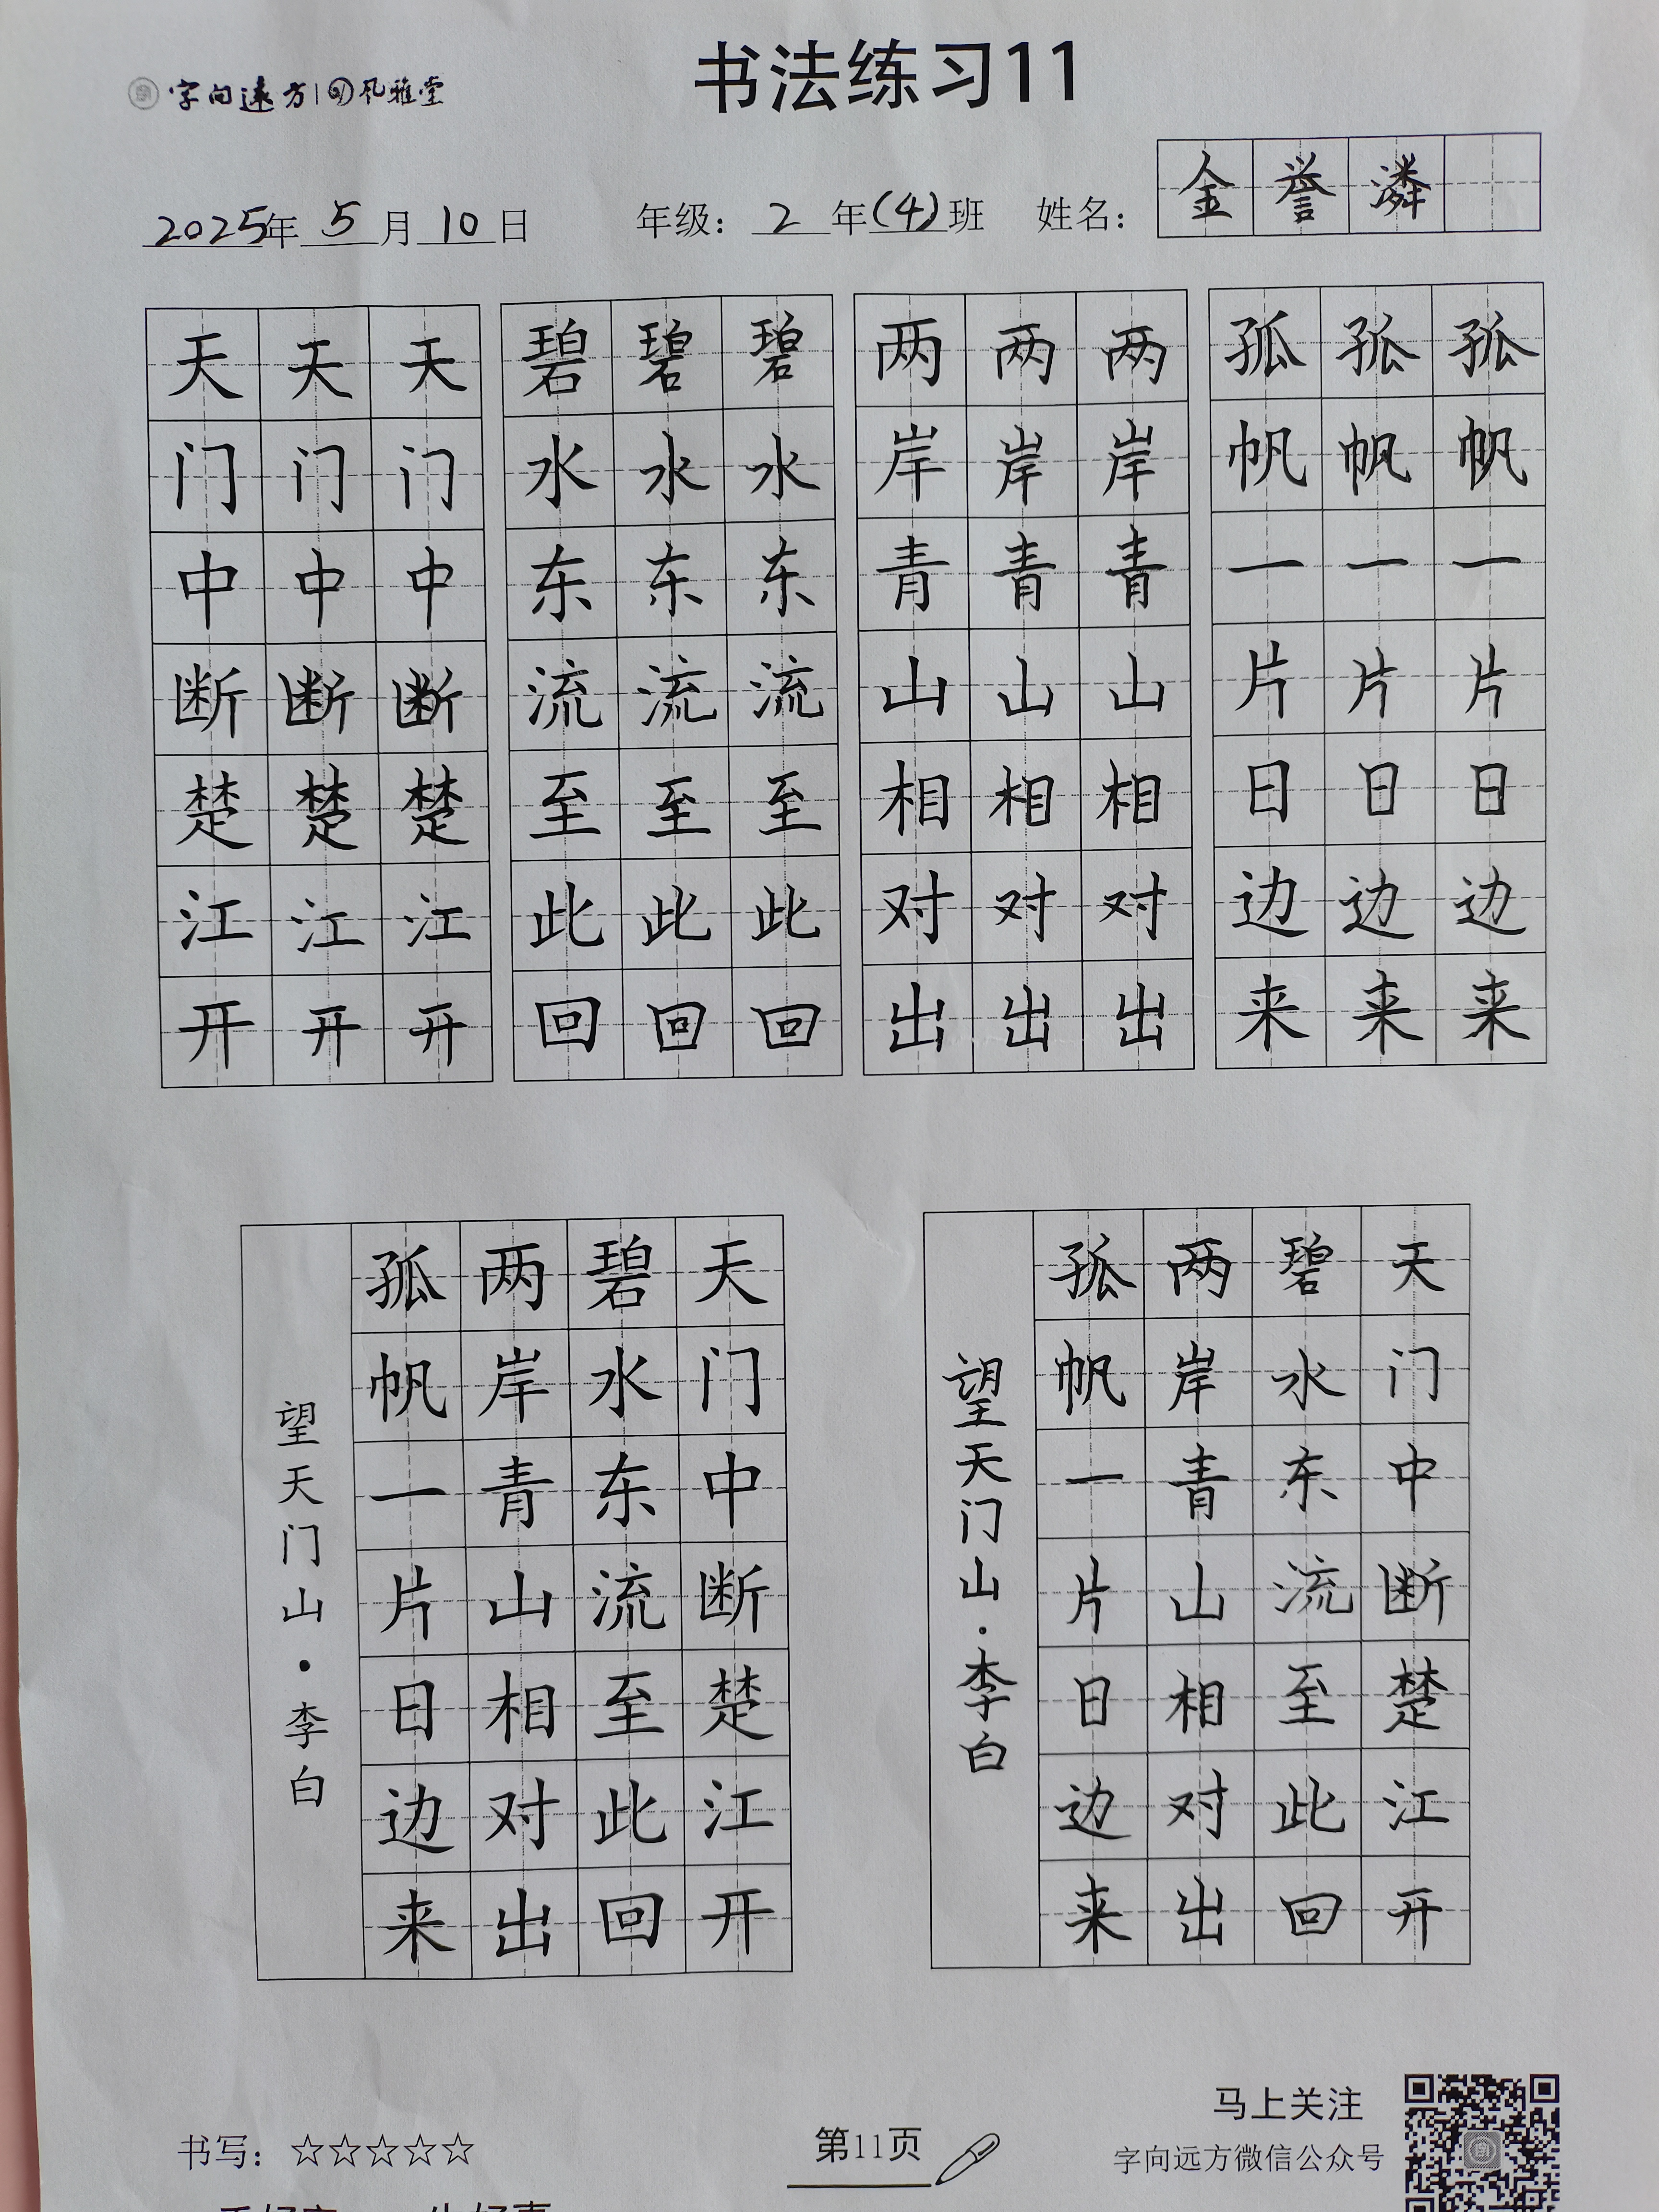 字向遠方 风雅堂
书法练习11
2025年 5 月 10 日 年级：2 年(4)班 姓名：金誉潾
天天天 碧碧碧 两两两 孤孤孤
门门门 水水水 岸岸岸 帆帆帆
中中中 东东东 青青青 一一一
断断断 流流流 山山山 片片片
楚楚楚 至至至 相相相 日日日
江江江 此此此 对对对 边边边
开开开 回回回 出出出 来来来
天门中断楚江开
碧水东流至此回
两岸青山相对出
孤帆一片日边来
望天门山·李白
天门中断楚江开
碧水东流至此回
两岸青山相对出
孤帆一片日边来
望天门山·李白
书写：☆☆☆☆☆
第11页
马上关注
字向远方微信公众号